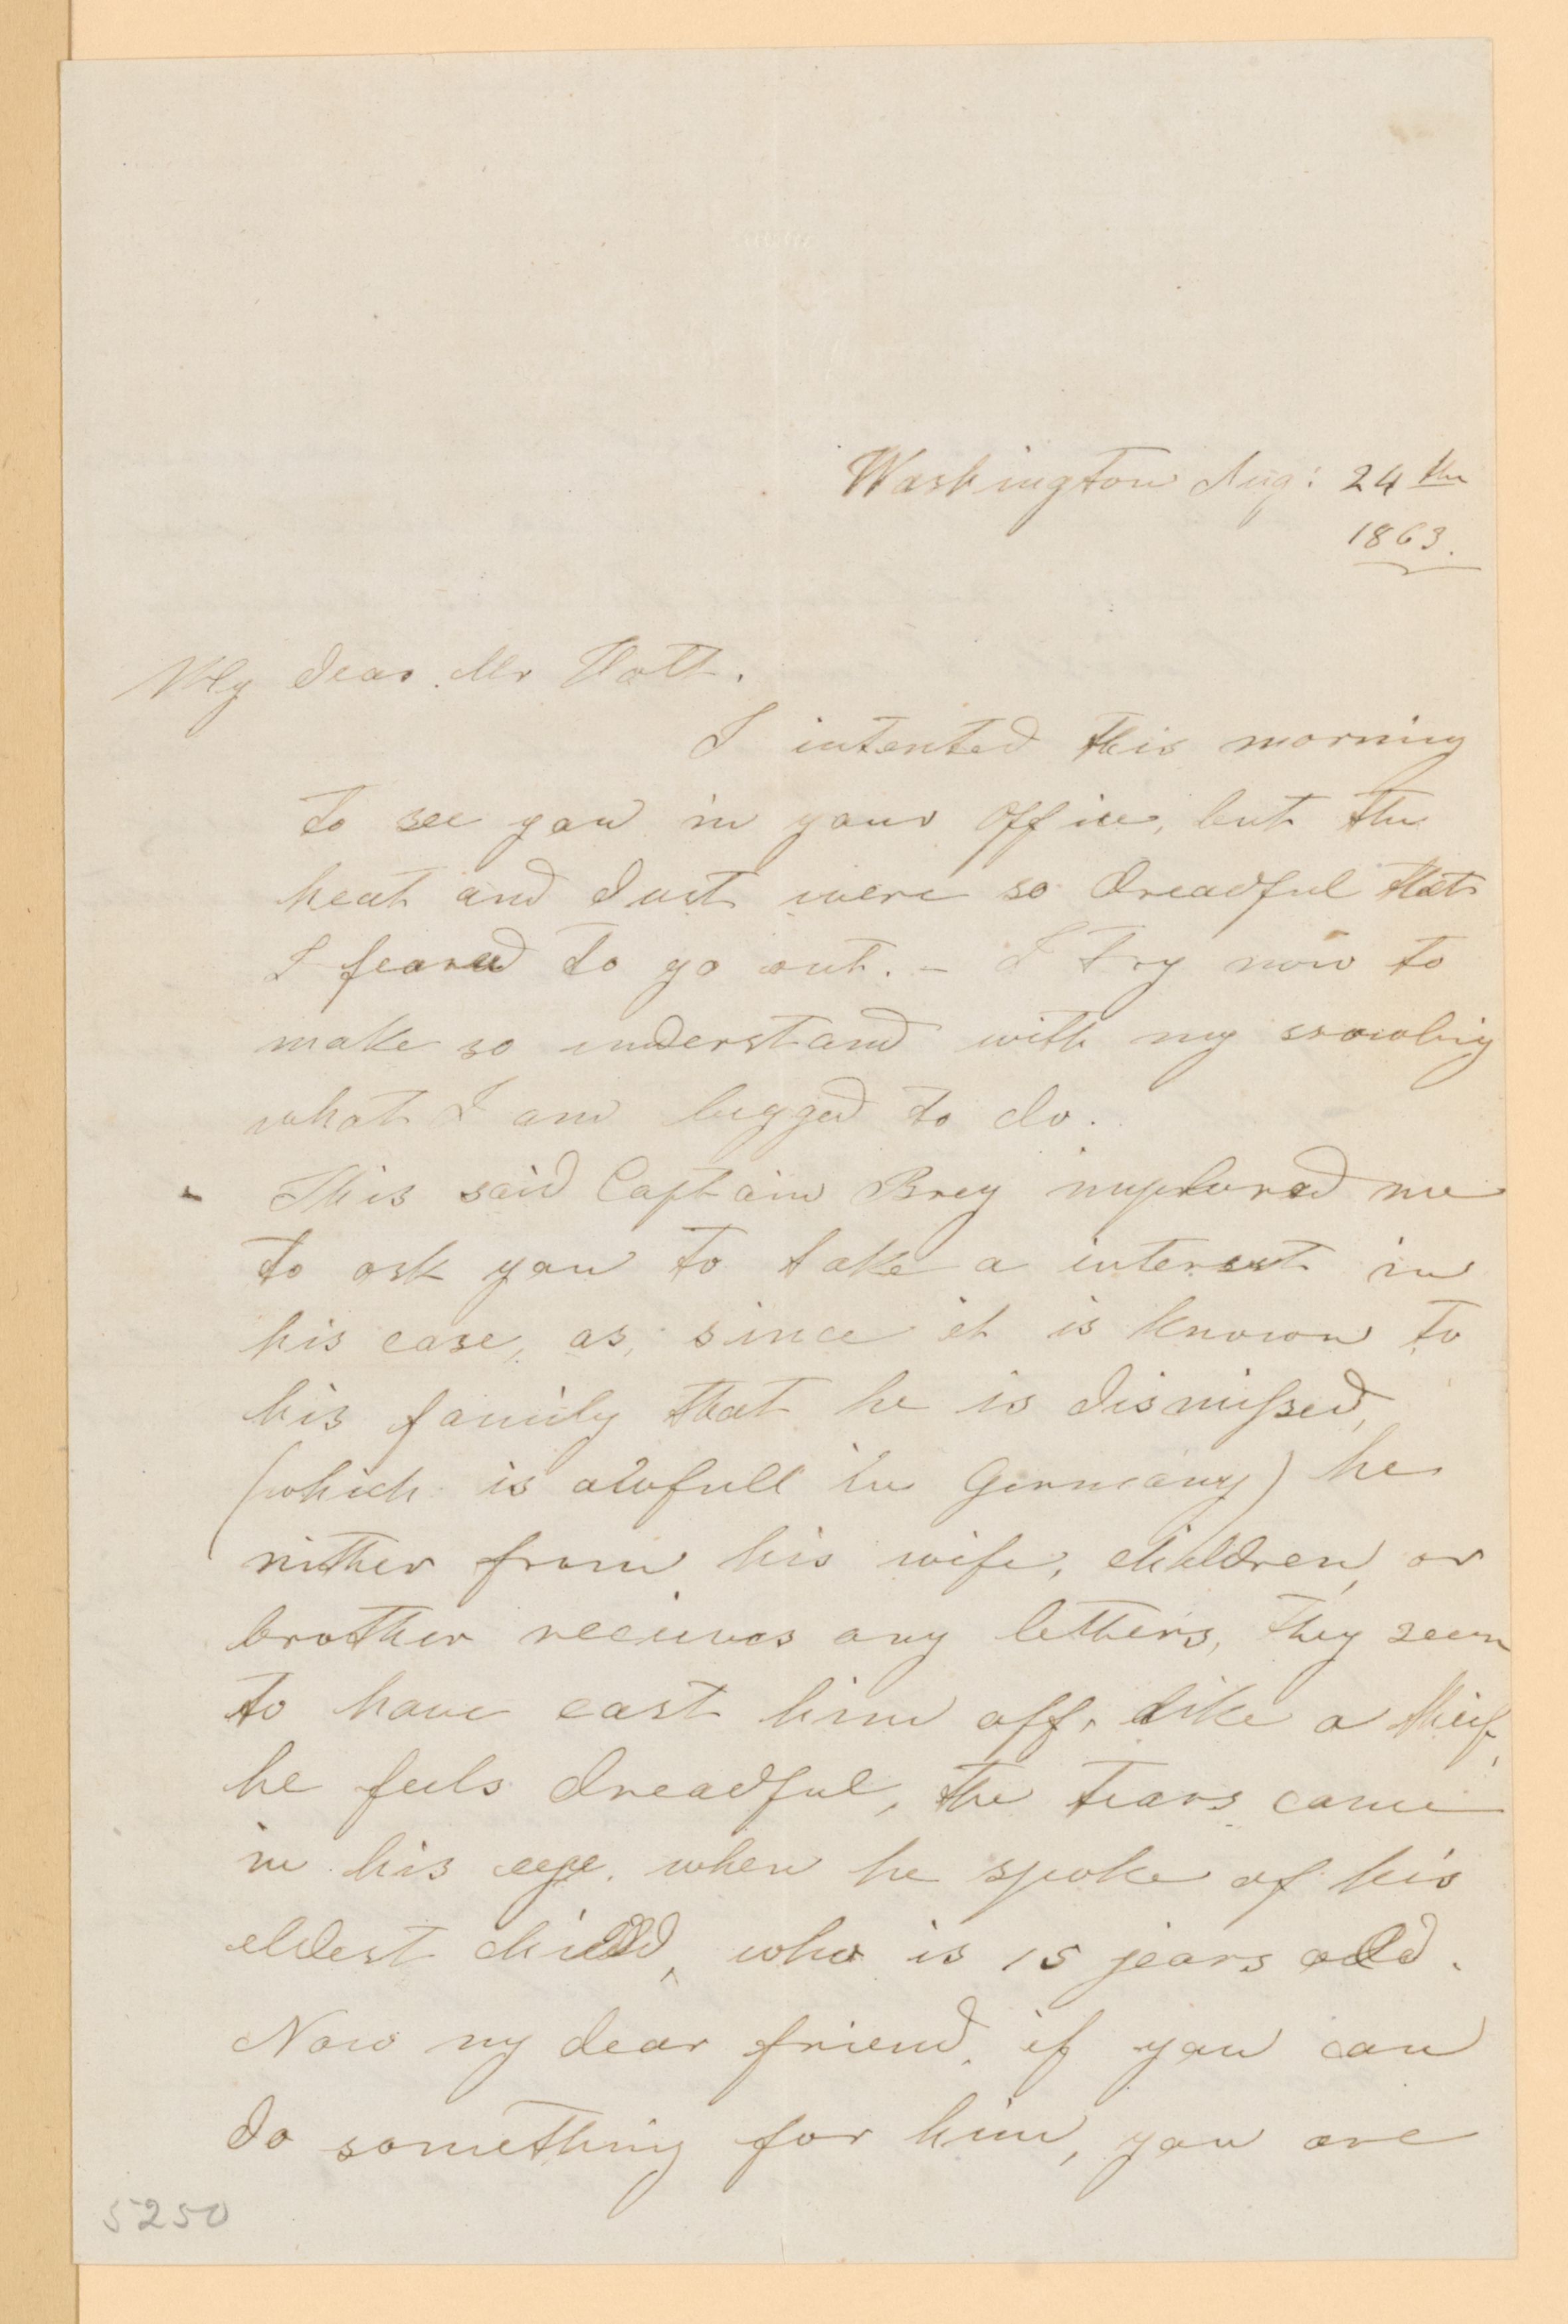 Washington Aug: 24th
1863.
My dear Mr Holt.
I intented this morning
to see you in your office, but the
heat and dust were so dreadful that
I feared to go out. - I try now to
make so understand with my
what I am begged to do.
This said Captain Brey implored me
to ask you to take a interest in
his case, as, since it is known to
his family that he is dismissed,
(which is awfull in Germany) he
nither from his wife, children, or
brother receives any letters, they seem
to have cast him off, like a thief,
he feels dreadful, the tears came
in his eye when he spoke of his
eldest child, who is 15 jears old.
Now my dear friend, if you can
do something for him, you are
5250